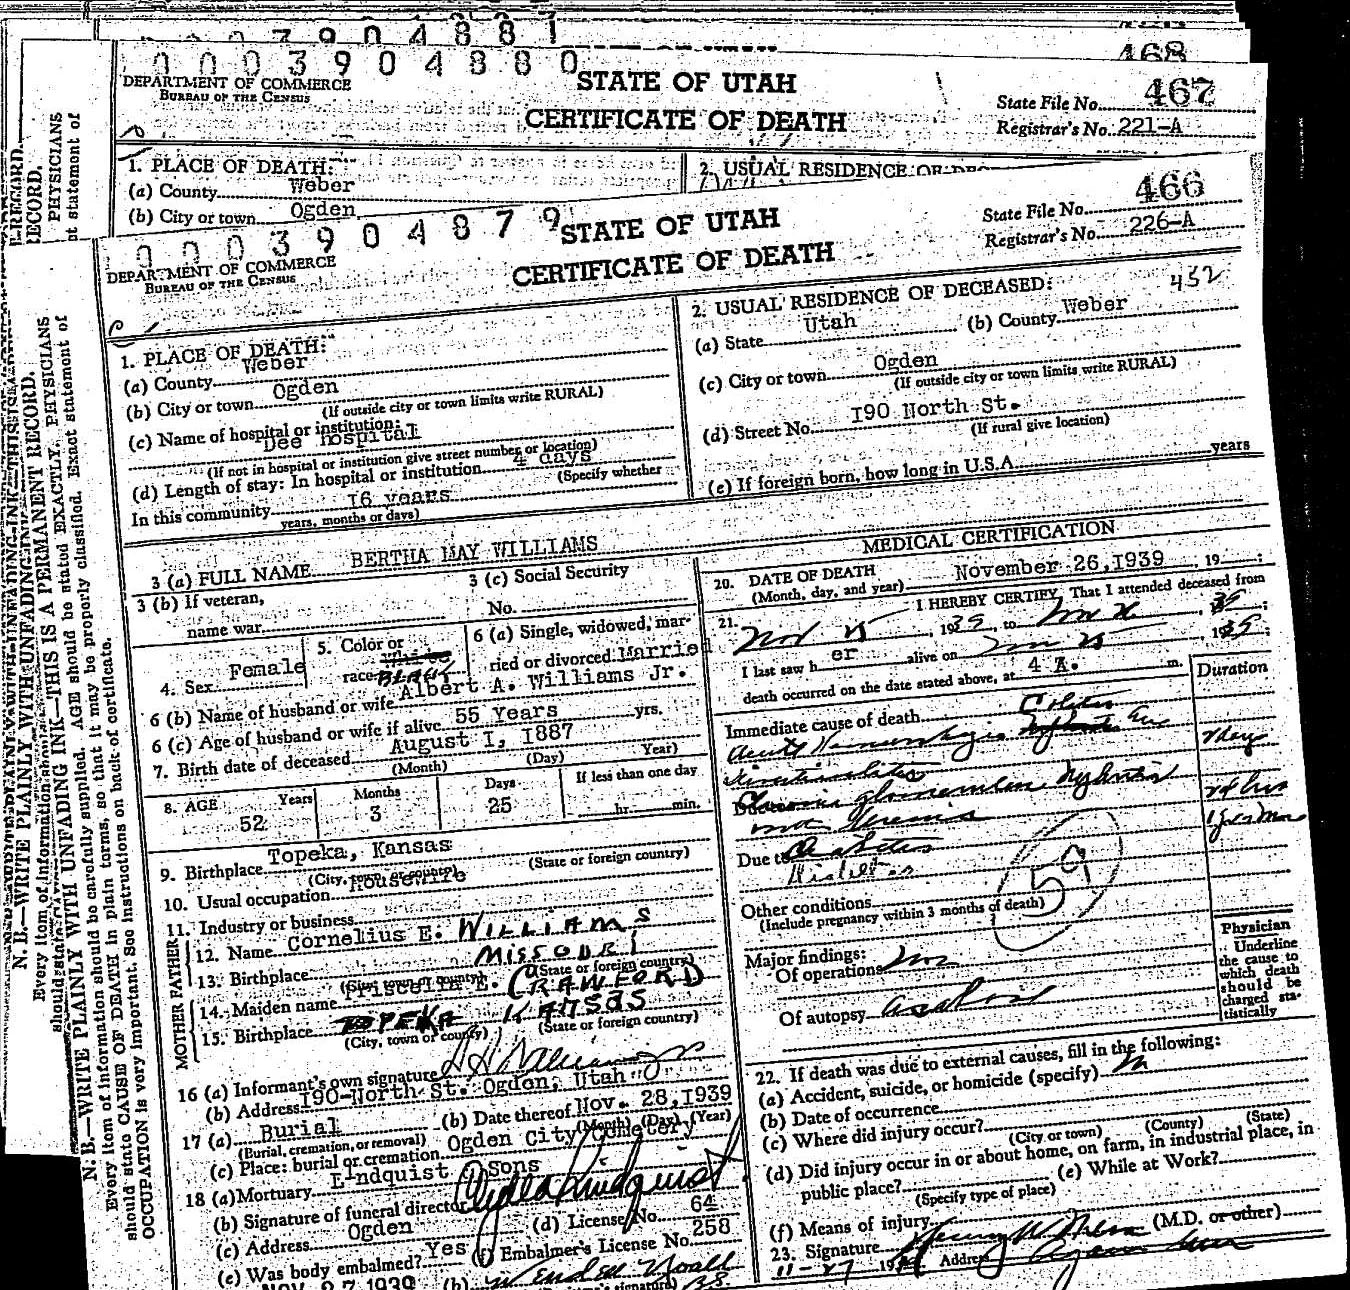 0003904881
468
0003904880
DEPARTMENT OF COMMERCE
BUREAU OF THE CENSUS
STATE OF UTAH
CERTIFICATE OF DEATH
State File No. 467
Registrar's No. 221-A
1. PLACE OF DEATH:
2. USUAL RESIDENCE OF
(a) County Weber
(b) City or town Ogden
0003904879
DEPARTMENT OF COMMERCE
BUREAU OF THE CENSUS
STATE OF UTAH
CERTIFICATE OF DEATH
State File No. 466
Registrar's No. 226-A
N. B.—WRITE PLAINLY WITH UNFADING INK—THIS IS A PERMANENT RECORD.
Every item of information should be carefully supplied. AGE should be stated EXACTLY. PHYSICIANS
should state CAUSE OF DEATH in plain terms, so that it may be properly classified. Exact statement of
OCCUPATION is very important. See instructions on back of certificate.
1. PLACE OF DEATH:
(a) County Weber
(b) City or town Ogden
(If outside city or town limits write RURAL)
(c) Name of hospital or institution:
Dee hospital
(If not in hospital or institution give street number or location)
(d) Length of stay: In hospital or institution 4 days
(Specify whether
In this community 16 years
years, months or days)
2. USUAL RESIDENCE OF DECEASED: 452
(a) State Utah (b) County Weber
(c) City or town Ogden
(If outside city or town limits write RURAL)
(d) Street No. 190 North St.
(If rural give location)
(e) If foreign born, how long in U.S.A. years
3 (a) FULL NAME BERTHA MAY WILLIAMS
3 (b) If veteran,
name war
3 (c) Social Security
No.
4. Sex Female
5. Color or
race White BLACK
6 (a) Single, widowed, mar-
ried or divorced Married
6 (b) Name of husband or wife Albert A. Williams Jr.
6 (c) Age of husband or wife if alive 55 Years yrs.
7. Birth date of deceased August 1, 1887
(Month) (Day) Year)
8. AGE Years Months Days If less than one day
52 3 25 hr. min.
9. Birthplace Topeka, Kansas
(City, town or county) (State or foreign country)
10. Usual occupation Housewife
11. Industry or business
FATHER
12. Name Cornelius E. WILLIAMS
13. Birthplace MISSOURI
(City, town or county) (State or foreign country)
MOTHER
14. Maiden name Priscella E. CRAWFORD
15. Birthplace TOPEKA KANSAS
(City, town or county) (State or foreign country)
16 (a) Informant's own signature
(b) Address 190-North St. Ogden, Utah
17 (a) Burial (b) Date thereof Nov. 28,1939
(Burial, cremation, or removal) (Month) (Day) (Year)
(c) Place: burial or cremation Ogden City Cemetery
18 (a) Mortuary Lindquist Sons
(b) Signature of funeral director
(c) Address Ogden (d) License No. 64
(e) Was body embalmed? Yes (f) Embalmer's License No. 258
NOV 27 1939 (b)
MEDICAL CERTIFICATION
20. DATE OF DEATH
(Month, day, and year) November 26,1939, 19
21. I HEREBY CERTIFY, That I attended deceased from
Nov 25, 1939, to Nov 26, 39;
I last saw her alive on Nov 25, 1939;
death occurred on the date stated above, at 4 A. m.
Duration
Immediate cause of death
Acute Hemorrhagic
Chronic glomerular Nephritis
Due to
Diabetes
Other conditions
(Include pregnancy within 3 months of death)
59
Major findings:
Of operations
Of autopsy
Physician
Underline
the cause to
which death
should be
charged sta-
tistically
22. If death was due to external causes, fill in the following:
(a) Accident, suicide, or homicide (specify)
(b) Date of occurrence
(c) Where did injury occur?
(City or town) (County) (State)
(d) Did injury occur in or about home, on farm, in industrial place, in
public place? (e) While at Work?
(Specify type of place)
(f) Means of injury
23. Signature (M.D. or other)
11-27 19 Address